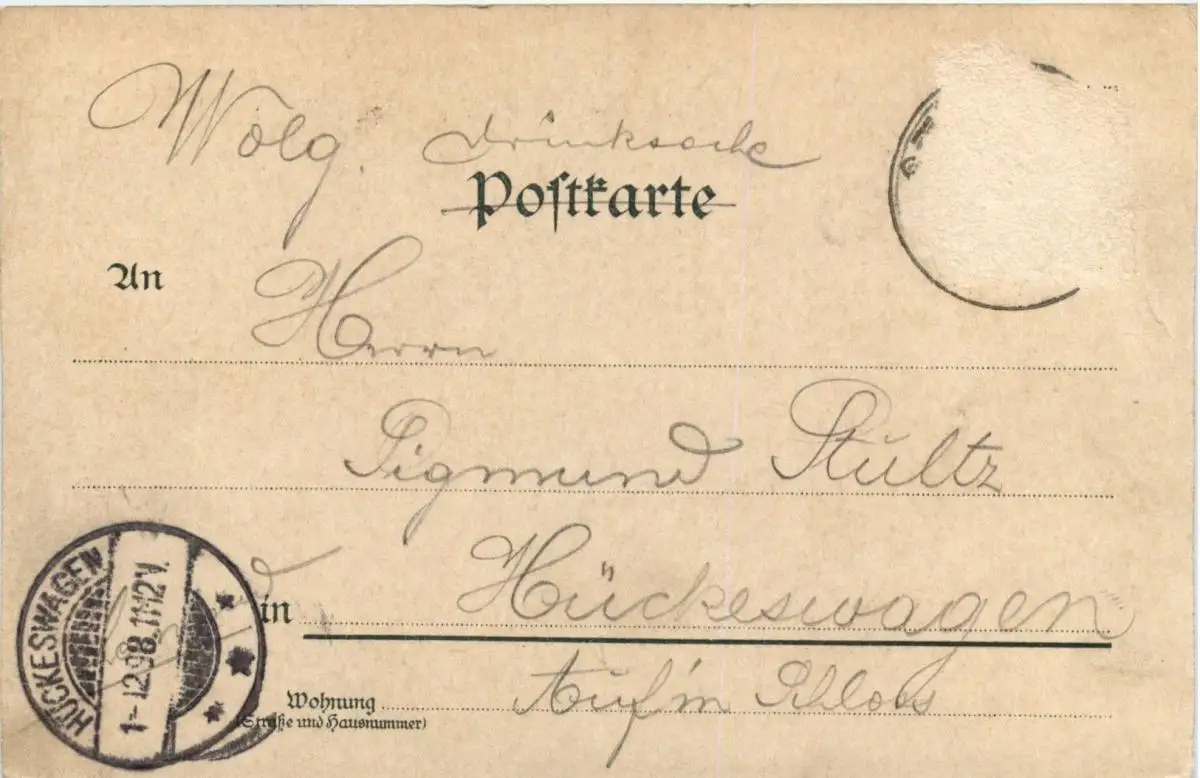 Wolg. Drucksache
Postkarte
An Herrn
Sigmund Stultz
in Hückeswagen
Wohnung Auf'm Schloss
(Straße und Hausnummer)
HÜCKESWAGEN
1-12.98.11-12V.